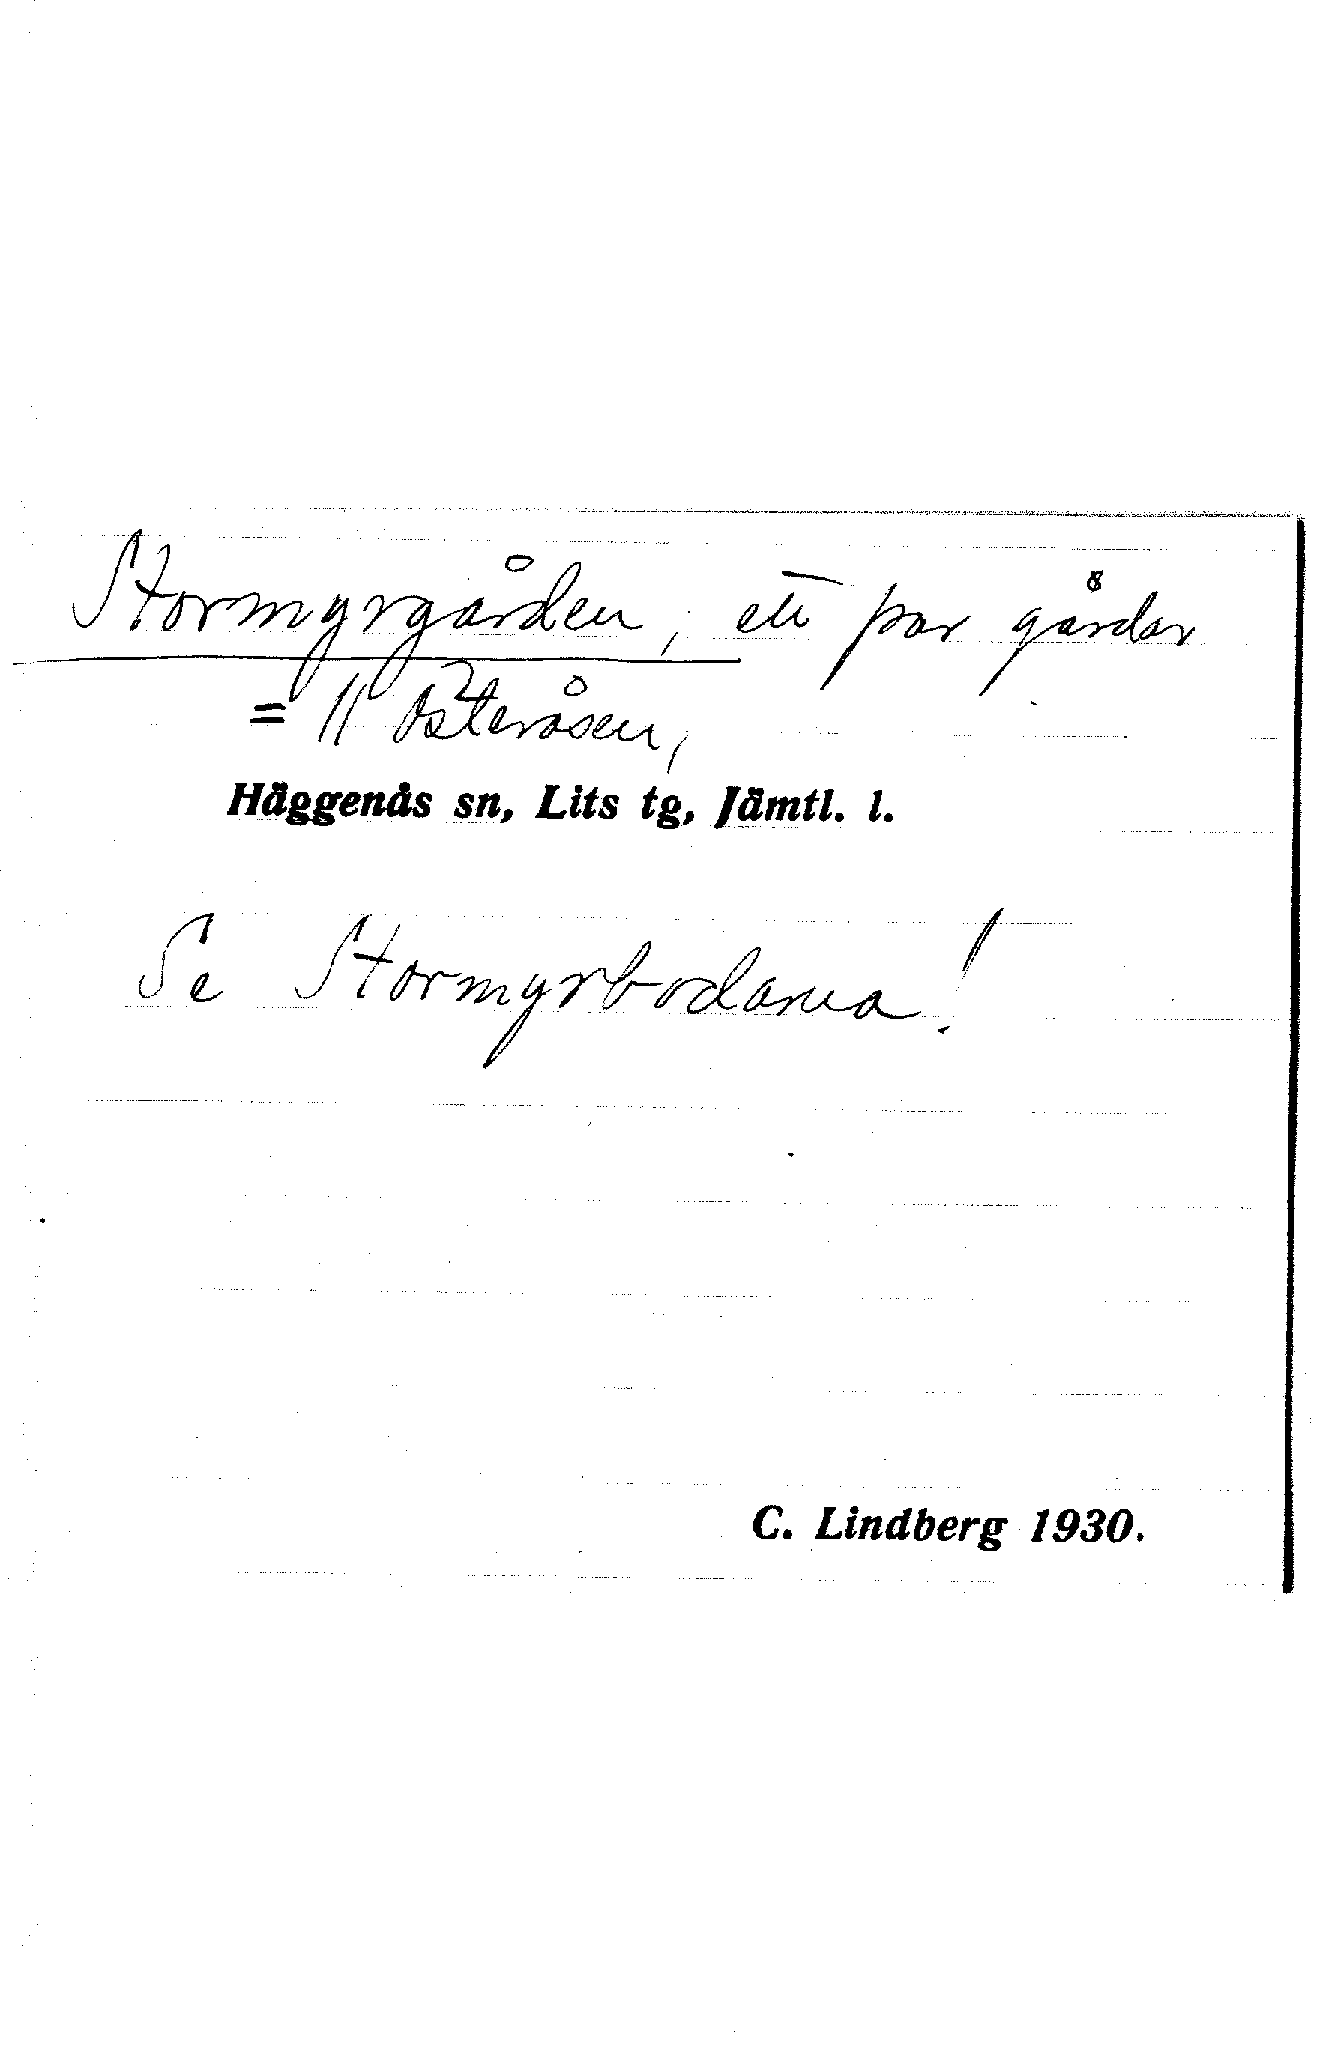 Stormyrgården, ett par gårdar
= 11 Österåsen,
Häggenås sn, Lits tg, Jämtl. l.
Se Stormyrbodarna!
C. Lindberg 1930.